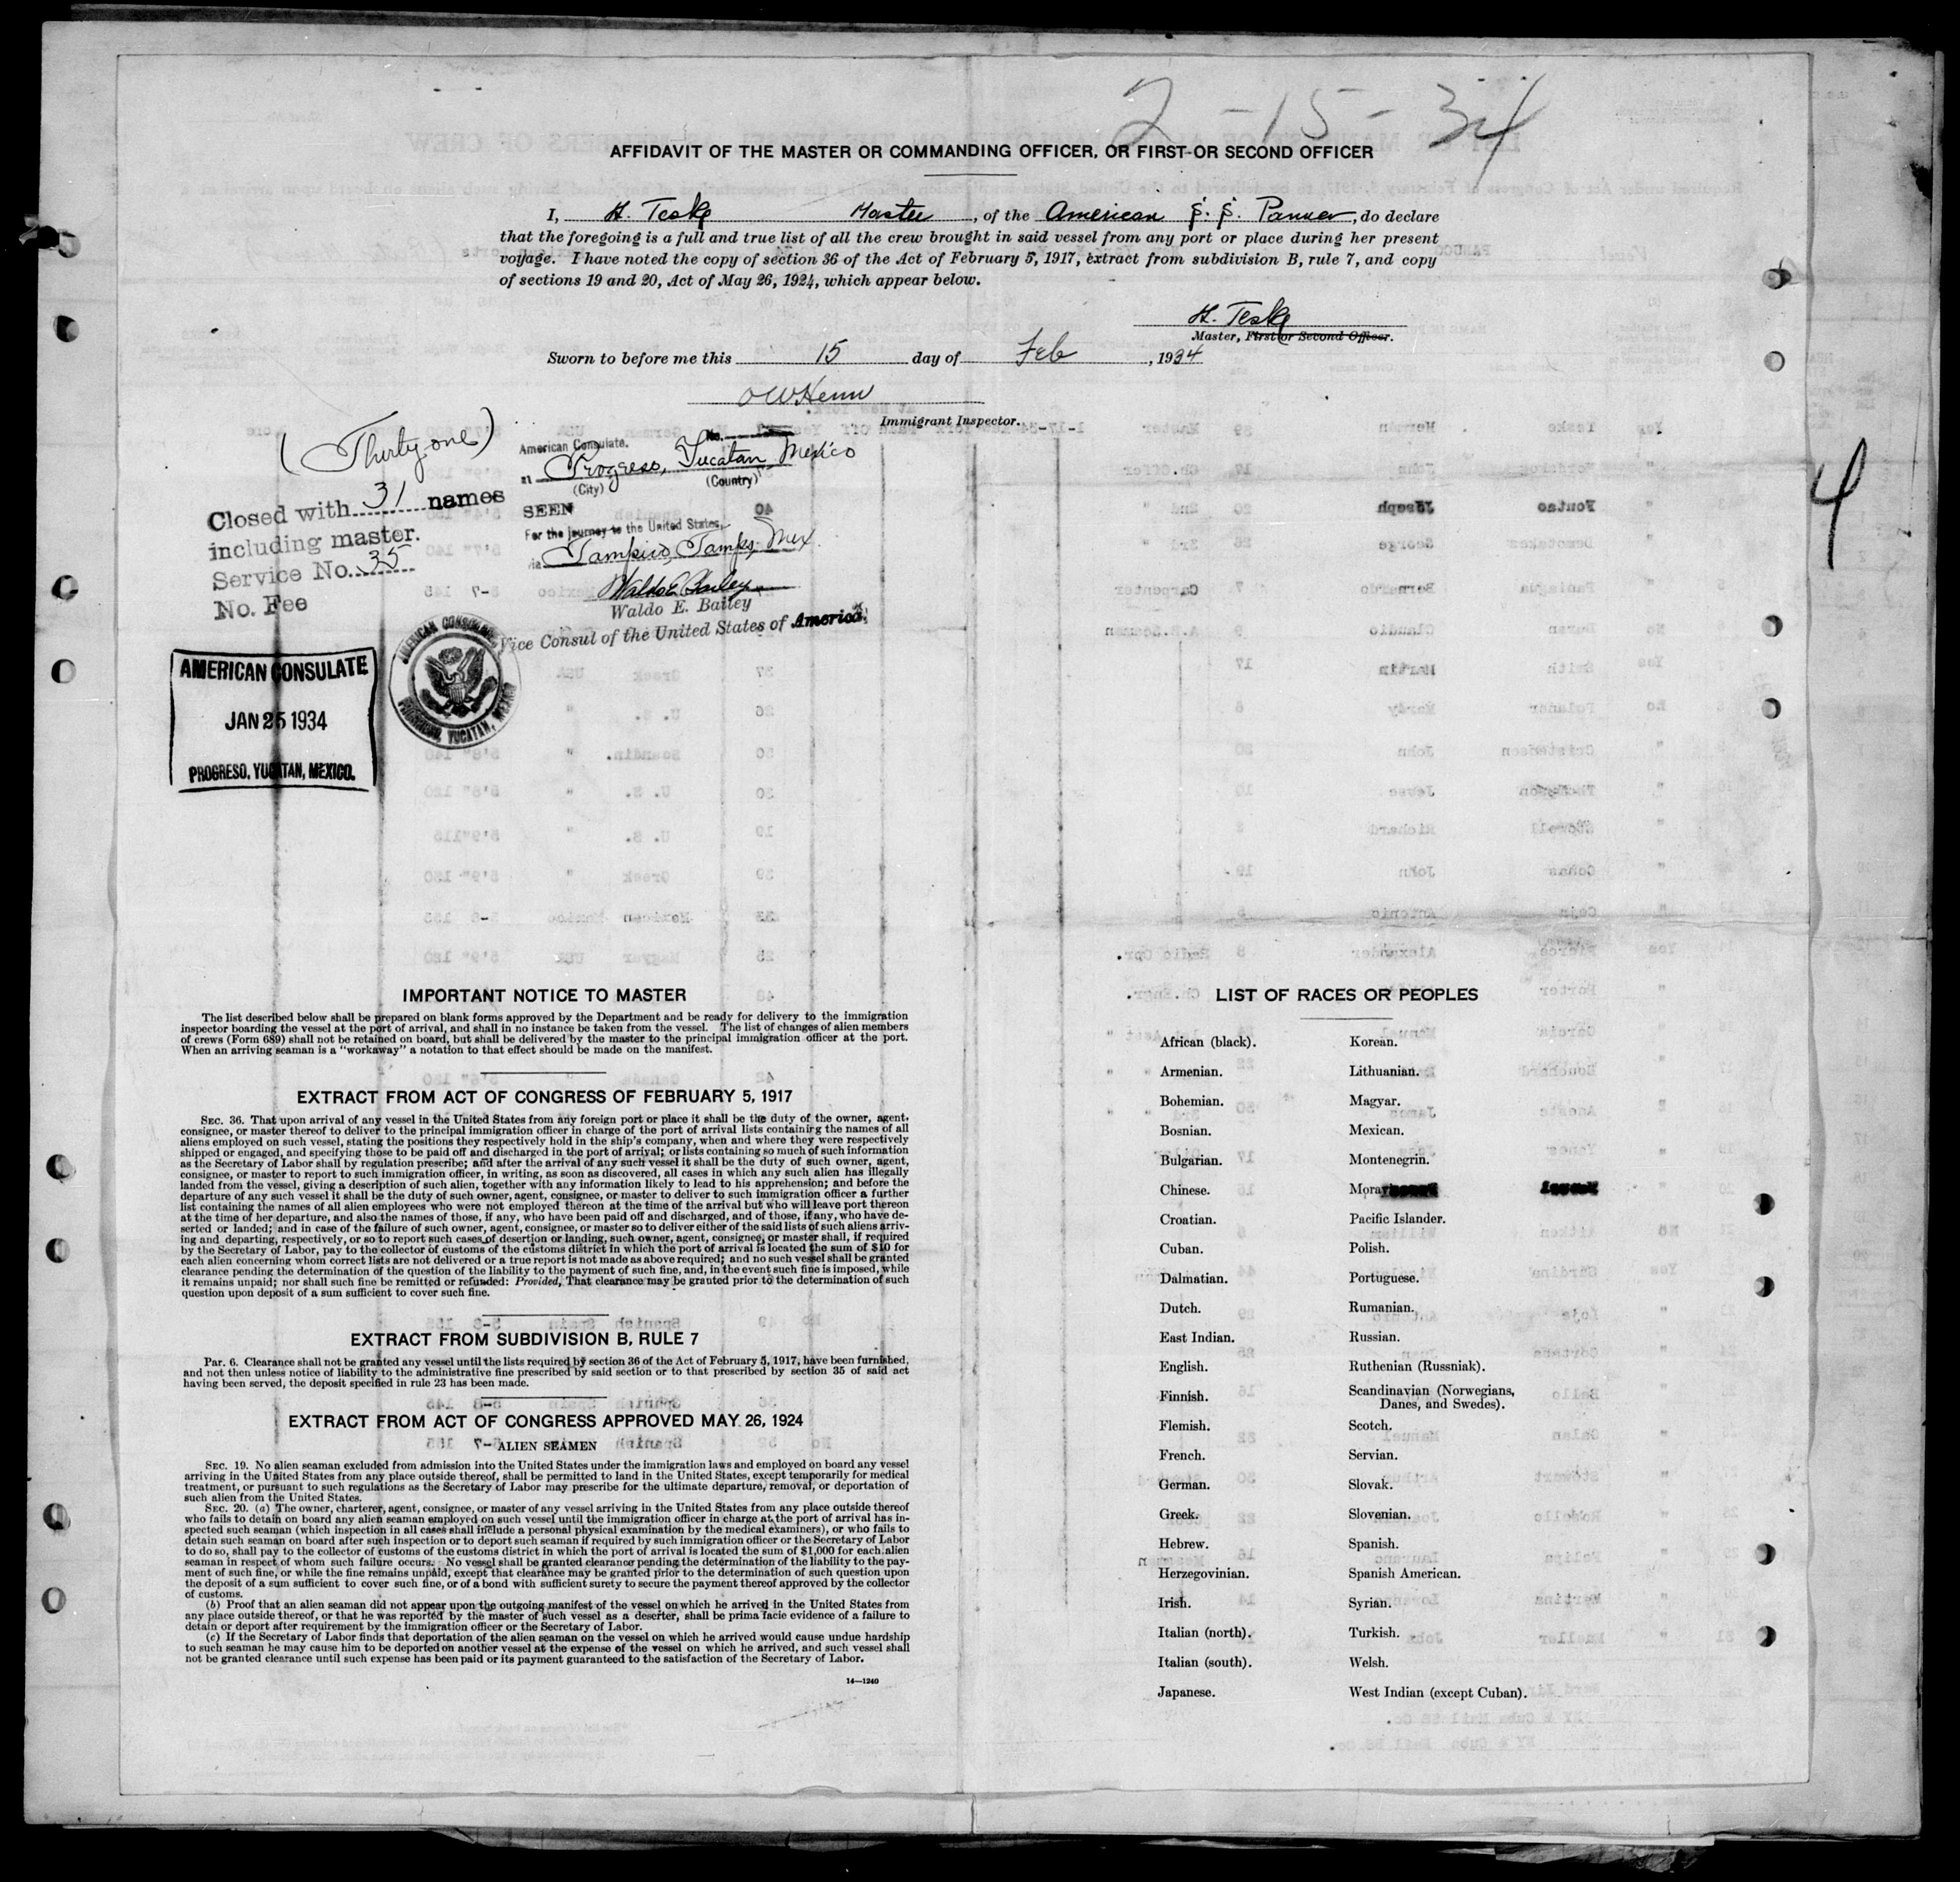 2-15-34
AFFIDAVIT OF THE MASTER OR COMMANDING OFFICER, OR FIRST OR SECOND OFFICER
I, H. Teske Master, of the American S. S. , do declare
that the foregoing is a full and true list of all the crew brought in said vessel from any port or place during her present
voyage. I have noted the copy of section 36 of the Act of February 5, 1917, extract from subdivision B, rule 7, and copy
of sections 19 and 20, Act of May 26, 1924, which appear below.
H. Teske
Master, First or Second Officer.
Sworn to before me this 15 day of Feb, 1934
Immigrant Inspector.
4
(Thirty-one)
Closed with 31 names
including master.
Service No. 35
No. Fee
American Consulate. No.
at Progreso, Yucatan, Mexico
(City) (Country)
SEEN
For the journey to the United States,
via Tampico, Tamps, Mex.
Waldo E. Bailey
Waldo E. Bailey
Vice Consul of the United States of America
AMERICAN CONSULATE
JAN 25 1934
PROGRESO, YUCATAN, MEXICO.
AMERICAN CONSULATE
PROGRESO, YUCATAN, MEXICO
IMPORTANT NOTICE TO MASTER
The list described below shall be prepared on blank forms approved by the Department and be ready for delivery to the immigration
inspector boarding the vessel at the port of arrival, and shall in no instance be taken from the vessel. The list of changes of alien members
of crews (Form 689) shall not be retained on board, but shall be delivered by the master to the principal immigration officer at the port.
When an arriving seaman is a "workaway" a notation to that effect should be made on the manifest.
EXTRACT FROM ACT OF CONGRESS OF FEBRUARY 5, 1917
SEC. 36. That upon arrival of any vessel in the United States from any foreign port or place it shall be the duty of the owner, agent,
consignee, or master thereof to deliver to the principal immigration officer in charge of the port of arrival lists containing the names of all
aliens employed on such vessel, stating the positions they respectively hold in the ship's company, when and where they were respectively
shipped or engaged, and specifying those to be paid off and discharged in the port of arrival; or lists containing so much of such information
as the Secretary of Labor shall by regulation prescribe; and after the arrival of any such vessel it shall be the duty of such owner, agent,
consignee, or master to report to such immigration officer, in writing, as soon as discovered, all cases in which any such alien has illegally
landed from the vessel, giving a description of such alien, together with any information likely to lead to his apprehension; and before the
departure of any such vessel it shall be the duty of such owner, agent, consignee, or master to deliver to such immigration officer a further
list containing the names of all alien employees who were not employed thereon at the time of the arrival but who will leave port thereon
at the time of her departure, and also the names of those, if any, who have been paid off and discharged, and of those, if any, who have de-
serted or landed; and in case of the failure of such owner, agent, consignee, or master so to deliver either of the said lists of such aliens arriv-
ing and departing, respectively, or so to report such cases of desertion or landing, such owner, agent, consignee, or master shall, if required
by the Secretary of Labor, pay to the collector of customs of the customs district in which the port of arrival is located the sum of $10 for
each alien concerning whom correct lists are not delivered or a true report is not made as above required; and no such vessel shall be granted
clearance pending the determination of the question of the liability to the payment of such fine, and, in the event such fine is imposed, while
it remains unpaid; nor shall such fine be remitted or refunded: Provided, That clearance may be granted prior to the determination of such
question upon deposit of a sum sufficient to cover such fine.
EXTRACT FROM SUBDIVISION B, RULE 7
Par. 6. Clearance shall not be granted any vessel until the lists required by section 36 of the Act of February 5, 1917, have been furnished,
and not then unless notice of liability to the administrative fine prescribed by said section or to that prescribed by section 35 of said act
having been served, the deposit specified in rule 23 has been made.
EXTRACT FROM ACT OF CONGRESS APPROVED MAY 26, 1924
ALIEN SEAMEN
SEC. 19. No alien seaman excluded from admission into the United States under the immigration laws and employed on board any vessel
arriving in the United States from any place outside thereof, shall be permitted to land in the United States, except temporarily for medical
treatment, or pursuant to such regulations as the Secretary of Labor may prescribe for the ultimate departure, removal, or deportation of
such alien from the United States.
SEC. 20. (a) The owner, charterer, agent, consignee, or master of any vessel arriving in the United States from any place outside thereof
who fails to detain on board any alien seaman employed on such vessel until the immigration officer in charge at the port of arrival has in-
spected such seaman (which inspection in all cases shall include a personal physical examination by the medical examiners), or who fails to
detain such seaman on board after such inspection or to deport such seaman if required by such immigration officer or the Secretary of Labor
to do so, shall pay to the collector of customs of the customs district in which the port of arrival is located the sum of $1,000 for each alien
seaman in respect of whom such failure occurs. No vessel shall be granted clearance pending the determination of the liability to the pay-
ment of such fine, or while the fine remains unpaid, except that clearance may be granted prior to the determination of such question upon
the deposit of a sum sufficient to cover such fine, or of a bond with sufficient surety to secure the payment thereof approved by the collector
of customs.
(b) Proof that an alien seaman did not appear upon the outgoing manifest of the vessel on which he arrived in the United States from
any place outside thereof, or that he was reported by the master of such vessel as a deserter, shall be prima facie evidence of a failure to
detain or deport after requirement by the immigration officer or the Secretary of Labor.
(c) If the Secretary of Labor finds that deportation of the alien seaman on the vessel on which he arrived would cause undue hardship
to such seaman he may cause him to be deported on another vessel at the expense of the vessel on which he arrived, and such vessel shall
not be granted clearance until such expense has been paid or its payment guaranteed to the satisfaction of the Secretary of Labor.
14—1240
LIST OF RACES OR PEOPLES
African (black).
Armenian.
Bohemian.
Bosnian.
Bulgarian.
Chinese.
Croatian.
Cuban.
Dalmatian.
Dutch.
East Indian.
English.
Finnish.
Flemish.
French.
German.
Greek.
Hebrew.
Herzegovinian.
Irish.
Italian (north).
Italian (south).
Japanese.
Korean.
Lithuanian.
Magyar.
Mexican.
Montenegrin.
Pacific Islander.
Polish.
Portuguese.
Rumanian.
Russian.
Ruthenian (Russniak).
Scandinavian (Norwegians,
Danes, and Swedes).
Scotch.
Servian.
Slovak.
Slovenian.
Spanish.
Spanish American.
Syrian.
Turkish.
Welsh.
West Indian (except Cuban).